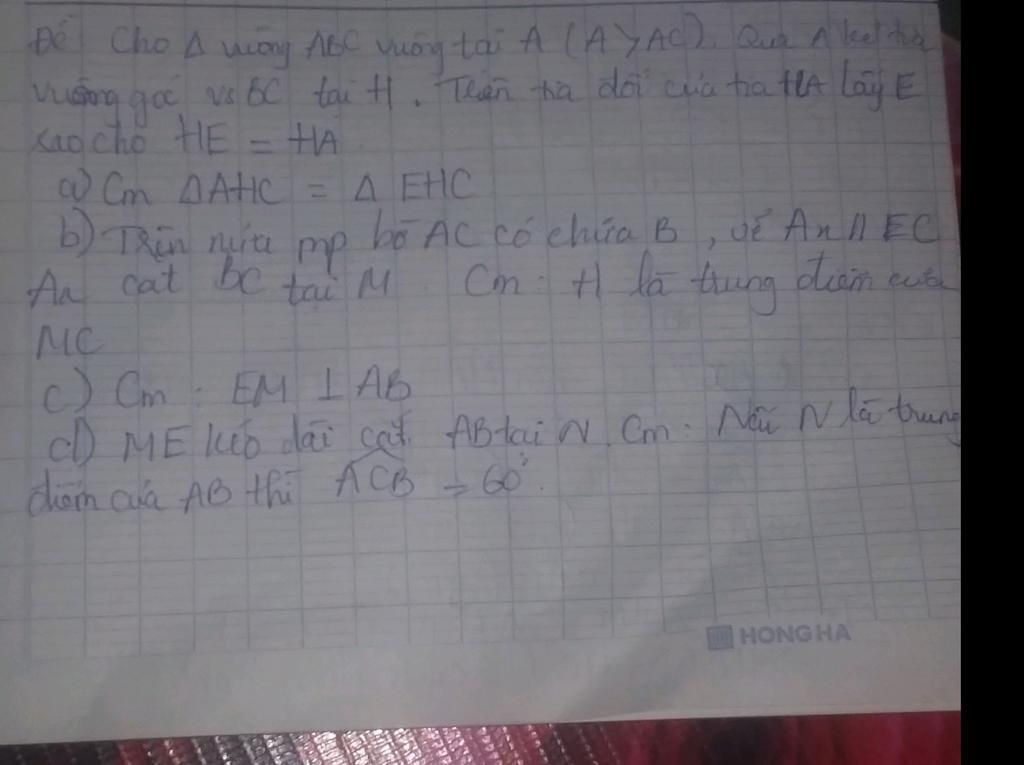 Đề Cho Δ vuông ABC vuông tại A (A>AC). Qua A kẻ
vuông góc vs BC tại H. Trên tia đối của tia HA lấy E
sao cho HE = HA
a) Cm ΔAHC = Δ EHC
b) Trên nửa mp bờ AC có chứa B, vẽ Ax // EC
Ax cắt BC tại M. Cm: H là trung điểm của
MC
c) Cm: EM ⊥ AB
d) ME kéo dài cắt AB tại N. Cm: Nếu N là trung
điểm của AB thì ACB = 60°.
HONG HA